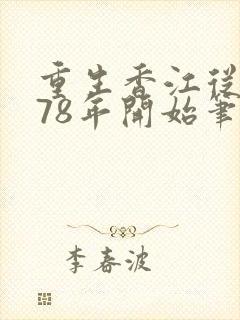 重生香江從
78年開始筆
李春波